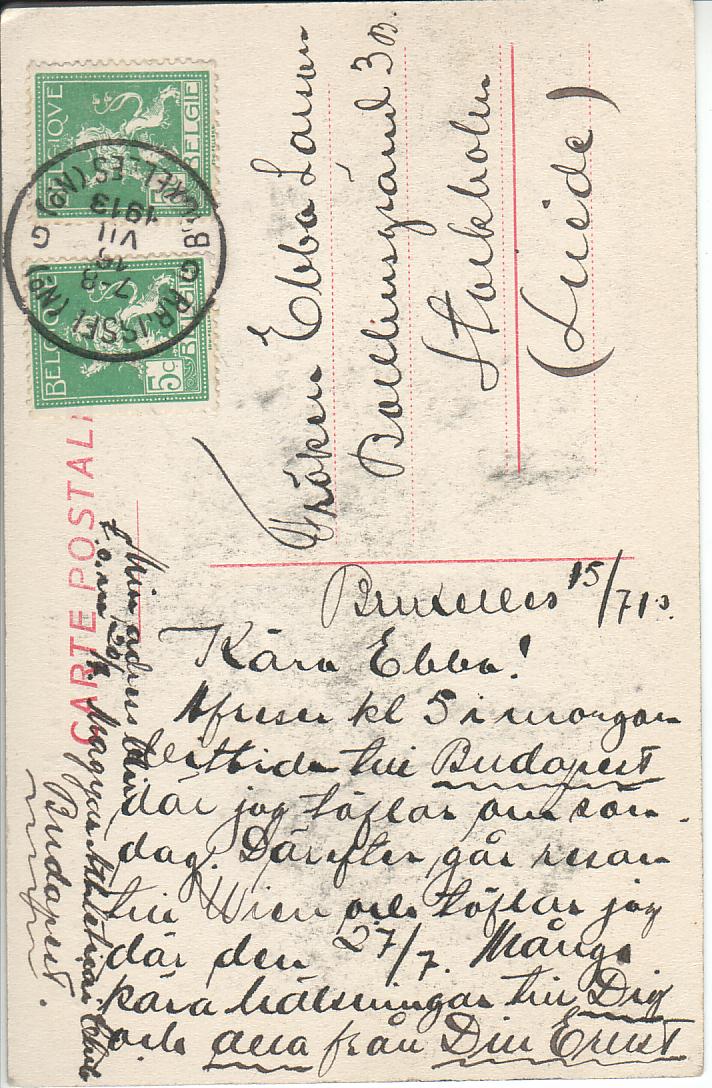 BELGIQUE BELGIE
BELGIQUE BELGIE 5c
BRUXELLES (Nd) G
7-8
15
VII
1913
BRUSSEL (Nd) G
CARTE POSTALE
Fröken Ebba Larson
3B.
Stockholm
(Suède)
Bruxelles 15/7 13.
Kära Ebba!
Afreser kl 5 i morgon
bittida till Budapest
där jag täflar om sön-
dag. Därefter går resan
till Wien och täflar jag
där den 27/7. Många
kära hälsningar till Dig
och alla från Din Ernst
Min adress blir
t.o.m. 20/7. Magyar Athletikai Club
Budapest.